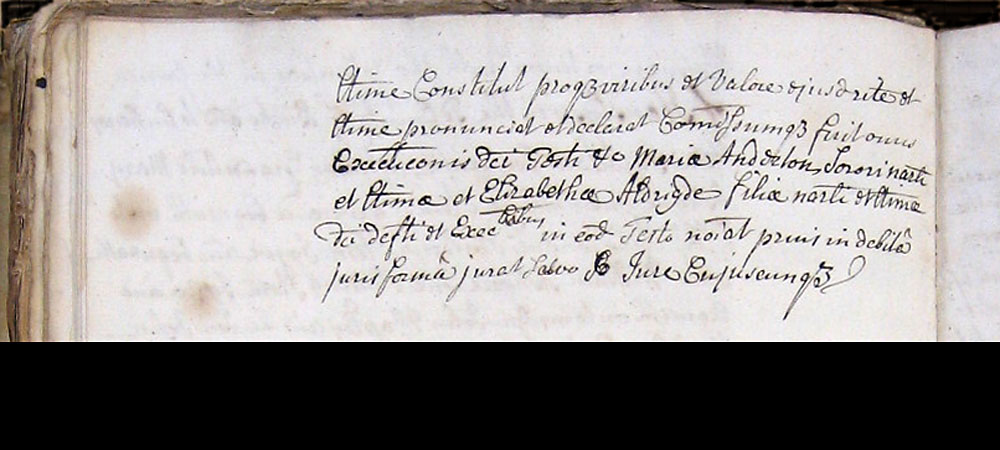 ltime Constitut proqȝ viribus et Valore ejusd rite et
ltime pronunciat et declarat Comissumqȝ fuit onus
Execuconis dci Testi &c Mariæ Anderton Sorori narli
et ltimæ et Elizabethæ Aldrigde filiæ narli et ltimæ
dci defti et Exec^tricibus in eod Testo noiat prius in debitâ
juris formâ jurat Salvo &c Jure Cujuscunqȝ